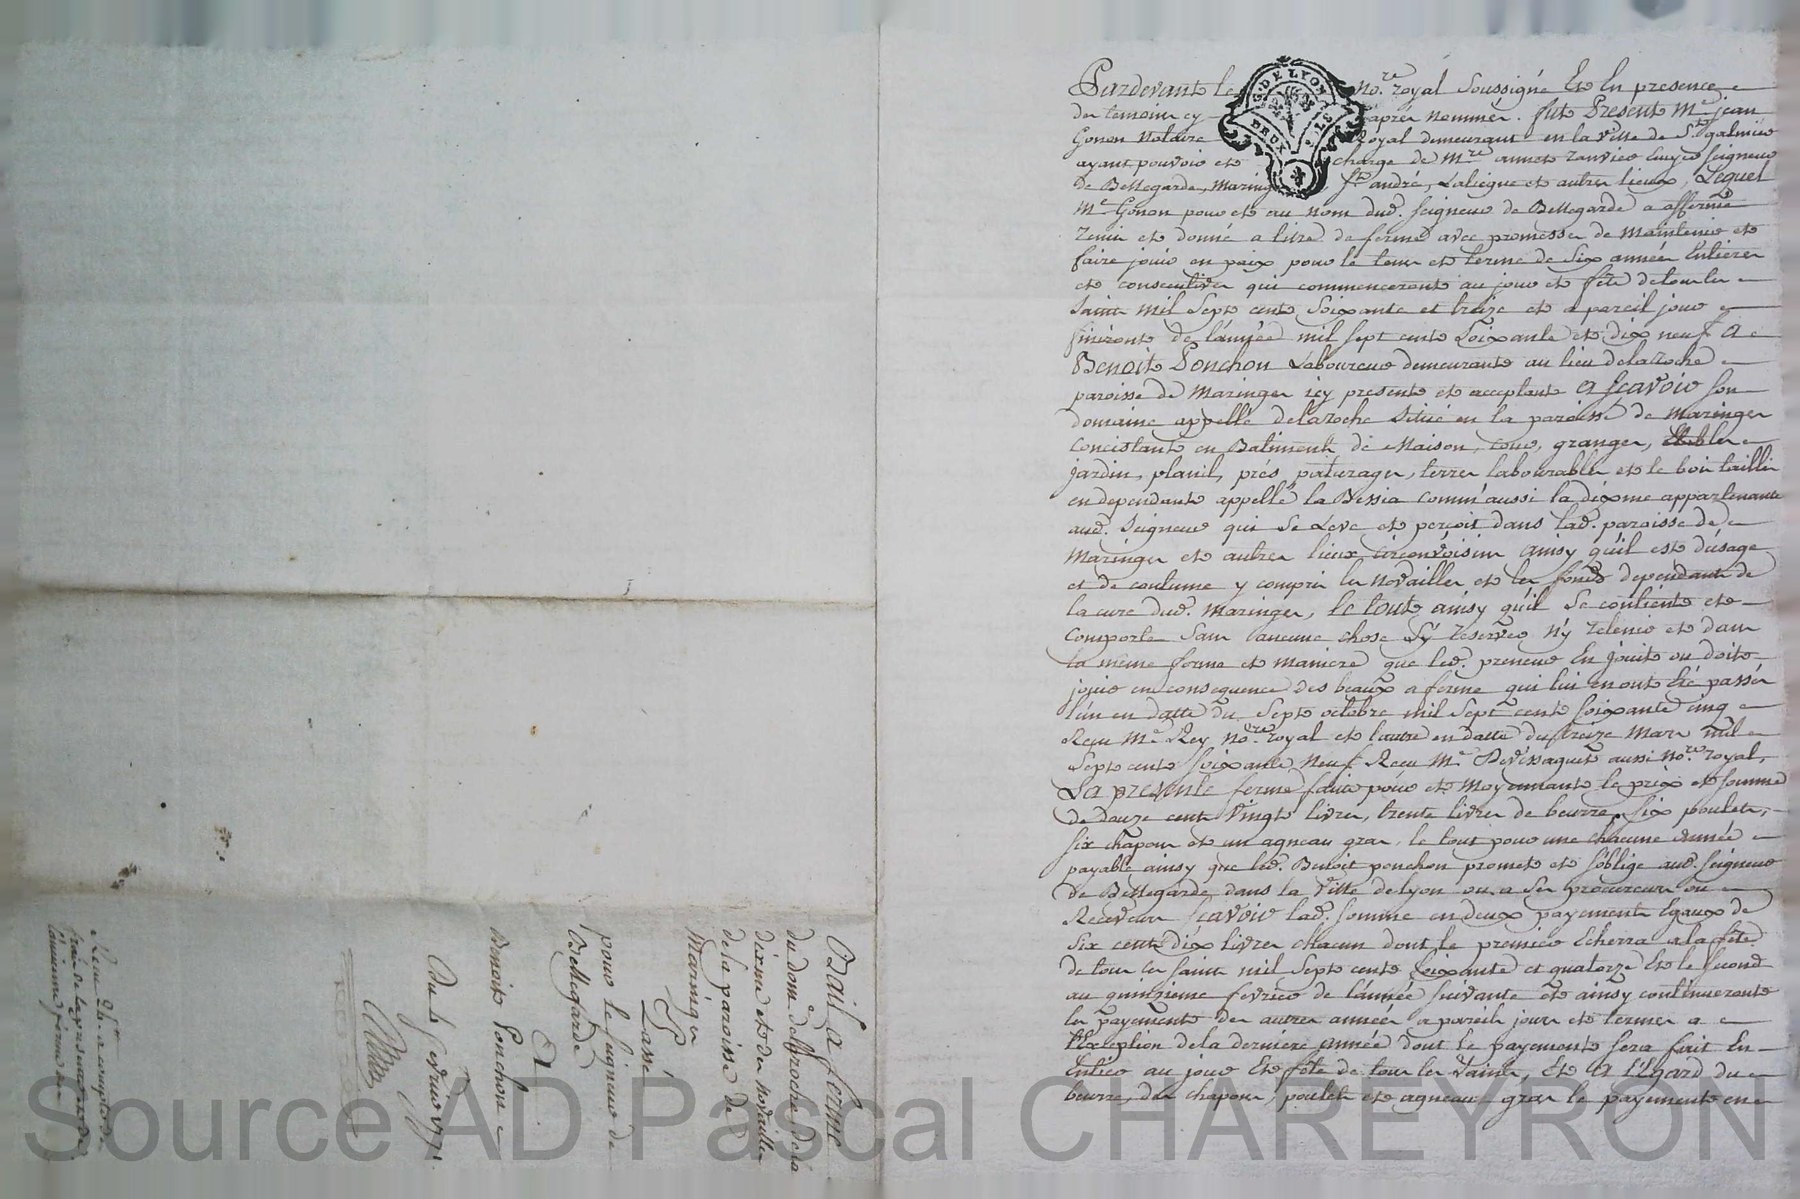 Pardevant le no.re royal Soussigné Et En presence
des temoins cy apres nommés. fut Present Me jean
Gonon Notaire Royal demeurant en la ville de St galmier
ayant pouvoir et charge de Mre annet ranvier Ecuyer Seigneur
de Bellegarde, Maringes St andré, Laliegue et autres lieux, Lequel
Me Gonon pour et au nom dud. Seigneur de Bellegarde a affermé
remis et donné a titre de ferme avec promesse de maintenir et
faire jouir en paix pour le tems et terme de Six années Entieres
et consecutives qui commenceront au jour et fête de tous les
Saints mil Sept cent Soixante et treize et a pareil jour
finiront de l'année mil sept cent Soixante et dix neuf A
Benoit Ponchon Laboureur demeurant au lieu de la roche
paroisse de Maringes icy present et acceptant A Scavoir Son
domaine appellé de la roche Situé en la paroisse de Maringes
Concistant en Batiments de Maison, cour, granges, Etables
jardin, plans, prés, paturages, terres labourables et le bois taillis
en dependant appellé la Bessia comm'aussi la dixme appartenante
aud. Seigneur qui Se Leve et perçoit dans lad. paroisse de
Maringes et autres lieux circonvoisins Ainsy qu'il est d'usage
et de coutume y compris les novailles et les fonds dependants de
la cure dud. Maringes, le tout ainsy qu'il Se contient et
Comporte Sans aucune chose S'y reserver n'y retenir et dans
la meme forme et maniere que led. preneur En jouit ou doit
jouir en consequence des beaux a ferme qui lui en ont Eté passés
l'un en datte du Sept octobre mil Sept cent Soixante cinq
Recu Me Rey No.re royal et l'autre en datte du treize Mars mil
Sept cent Soixante Neuf Recu Me Devissaguet aussi No.re royal,
La presente ferme faite pour et Moyennant le prix et Somme
de douze cent Vingt livres, trente livres de beurre, Six poulets,
Six chapons et un agneau gras, le tout pour une chacune année
payable ainsy que led. Benoit ponchon promet et s'oblige aud. Seigneur
de Bellegarde dans la Ville de lyon ou a Ses procureurs ou
Receveurs Scavoir lad. Somme en deux payements Egaux de
Six cent dix livres chacun dont le premier Echerra a la fête
de tous les Saints mil Sept cent Soixante et quatorze Et le Second
au quinzieme fevrier de l'année Suivante et ainsy continueront
les payements des autres années a pareils jours et termes a
l'Exeption de la derniere Année dont le payement Sera fait En
Entier au jour Et fête de tous les Saints, Et A l'Egard du
beurre, des chapons, poulets et agneau gras le payement en
G. DE LYON
DEUX SOLS
Bail a ferme
du dom.e de la roche, de la
dixme et des Novailles
de la paroisse de
Maringes
Passé
Pr
pour le Seigneur de
Bellegarde
A
Benoit Ponchon
Du 4 fevrier 1771.
Source AD Pascal CHAREYRON